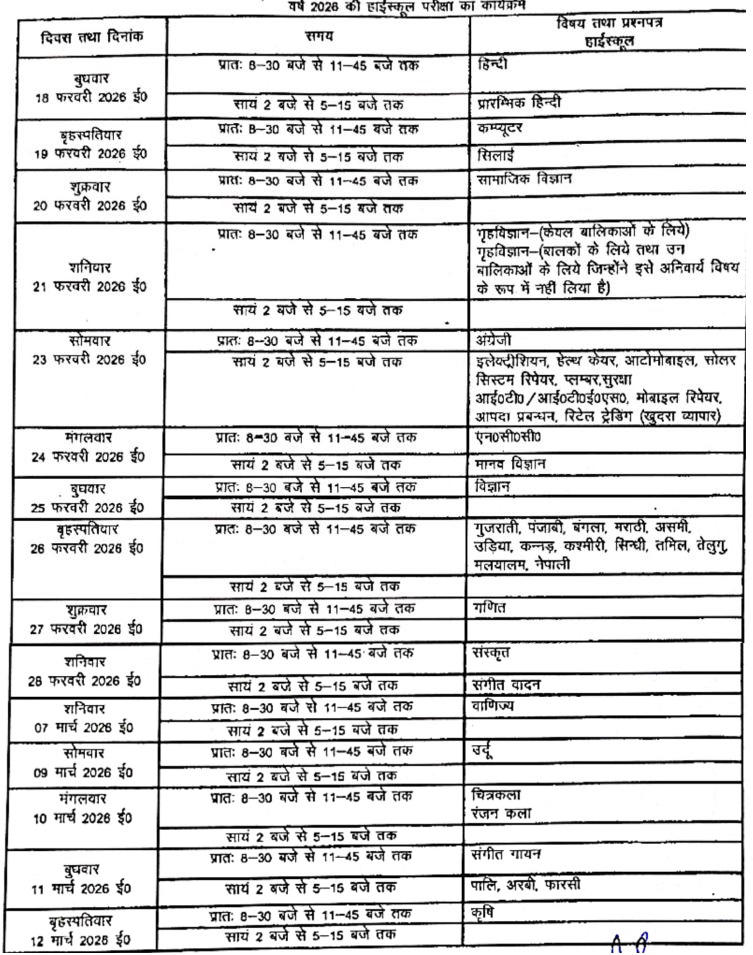 वर्ष 2026 की हाईस्कूल परीक्षा का कार्यक्रम
दिवस तथा दिनांक
समय
विषय तथा प्रश्नपत्र
हाईस्कूल
बुधवार
18 फरवरी 2026 ई0
प्रातः 8–30 बजे से 11–45 बजे तक
हिन्दी
सायं 2 बजे से 5–15 बजे तक
प्रारम्भिक हिन्दी
बृहस्पतिवार
19 फरवरी 2026 ई0
प्रातः 8–30 बजे से 11–45 बजे तक
कम्प्यूटर
सायं 2 बजे से 5–15 बजे तक
सिलाई
शुक्रवार
20 फरवरी 2026 ई0
प्रातः 8–30 बजे से 11–45 बजे तक
सामाजिक विज्ञान
सायं 2 बजे से 5–15 बजे तक
शनिवार
21 फरवरी 2026 ई0
प्रातः 8–30 बजे से 11–45 बजे तक
गृहविज्ञान–(केवल बालिकाओं के लिये)
गृहविज्ञान–(बालकों के लिये तथा उन
बालिकाओं के लिये जिन्होंने इसे अनिवार्य विषय
के रूप में नहीं लिया है)
सायं 2 बजे से 5–15 बजे तक
सोमवार
23 फरवरी 2026 ई0
प्रातः 8–30 बजे से 11–45 बजे तक
अंग्रेजी
सायं 2 बजे से 5–15 बजे तक
इलेक्ट्रीशियन, हेल्थ केयर, आटोमोबाइल, सोलर
सिस्टम रिपेयर, प्लम्बर,सुरक्षा
आई0टी0/आई0टी0ई0एस0, मोबाइल रिपेयर,
आपदा प्रबन्धन, रिटेल ट्रेडिंग (खुदरा व्यापार)
मंगलवार
24 फरवरी 2026 ई0
प्रातः 8–30 बजे से 11–45 बजे तक
एन0सी0सी0
सायं 2 बजे से 5–15 बजे तक
मानव विज्ञान
बुधवार
25 फरवरी 2026 ई0
प्रातः 8–30 बजे से 11–45 बजे तक
विज्ञान
सायं 2 बजे से 5–15 बजे तक
बृहस्पतिवार
26 फरवरी 2026 ई0
प्रातः 8–30 बजे से 11–45 बजे तक
गुजराती, पंजाबी, बंगला, मराठी, असमी,
उड़िया, कन्नड़, कश्मीरी, सिन्धी, तमिल, तेलुगु,
मलयालम, नेपाली
सायं 2 बजे से 5–15 बजे तक
शुक्रवार
27 फरवरी 2026 ई0
प्रातः 8–30 बजे से 11–45 बजे तक
गणित
सायं 2 बजे से 5–15 बजे तक
शनिवार
28 फरवरी 2026 ई0
प्रातः 8–30 बजे से 11–45 बजे तक
संस्कृत
सायं 2 बजे से 5–15 बजे तक
संगीत वादन
शनिवार
07 मार्च 2026 ई0
प्रातः 8–30 बजे से 11–45 बजे तक
वाणिज्य
सायं 2 बजे से 5–15 बजे तक
सोमवार
09 मार्च 2026 ई0
प्रातः 8–30 बजे से 11–45 बजे तक
उर्दू
सायं 2 बजे से 5–15 बजे तक
मंगलवार
10 मार्च 2026 ई0
प्रातः 8–30 बजे से 11–45 बजे तक
चित्रकला
रंजन कला
सायं 2 बजे से 5–15 बजे तक
बुधवार
11 मार्च 2026 ई0
प्रातः 8–30 बजे से 11–45 बजे तक
संगीत गायन
सायं 2 बजे से 5–15 बजे तक
पालि, अरबी, फारसी
बृहस्पतिवार
12 मार्च 2026 ई0
प्रातः 8–30 बजे से 11–45 बजे तक
कृषि
सायं 2 बजे से 5–15 बजे तक